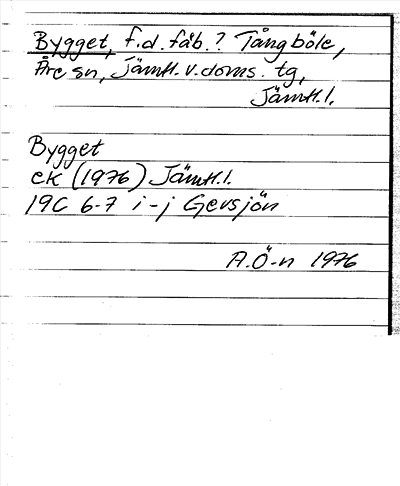 Bygget, f.d. fäb.? Tångböle,
Åre sn, Jämtl. v. doms. tg,
Jämtl.l.
Bygget
ek (1976) Jämtl.l.
19C 6-7 i-j Gevsjön
A.Ö-n 1976